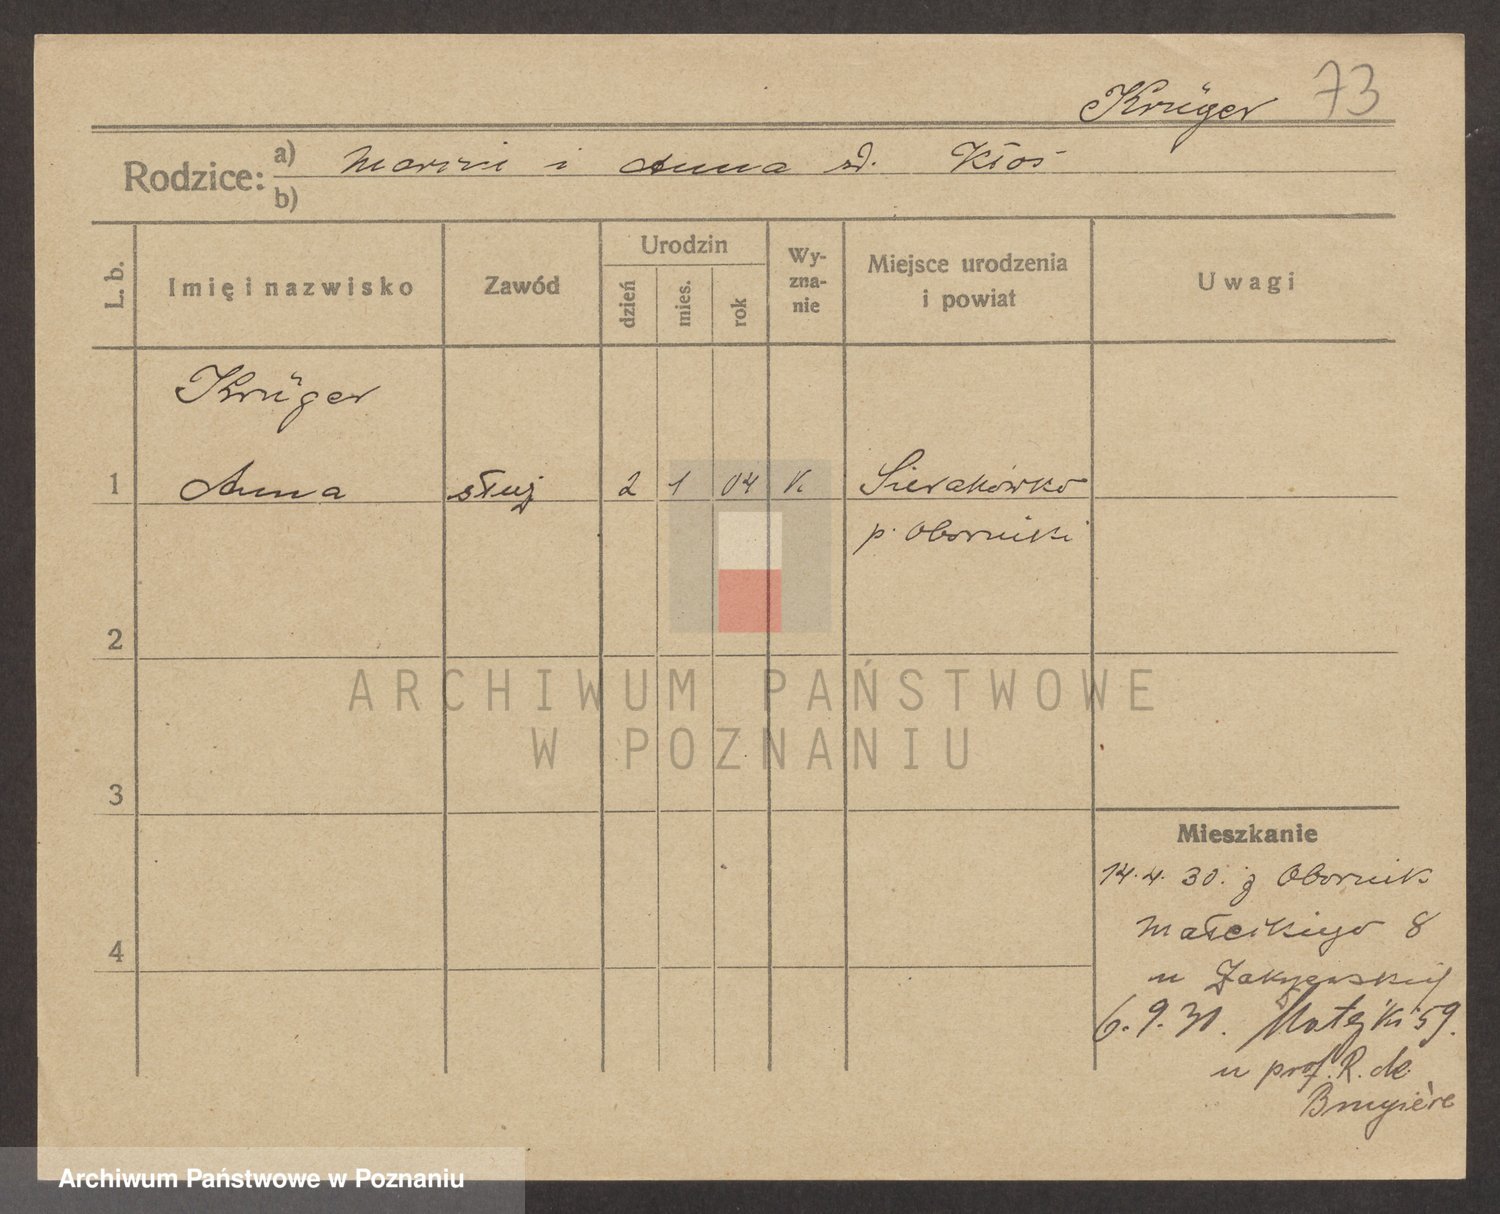 Krüger 73
Rodzice: a) i Anna zd. Kłos
b)
L. b. Imię i nazwisko Zawód Urodzin dzień mies. rok Wyznanie Miejsce urodzenia i powiat Uwagi
Krüger
1 Anna służ 2 1 04 k. Sierakówko
p. Oborniki
2
ARCHIWUM PAŃSTWOWE
W POZNANIU
3
Mieszkanie
14.4.30. z Obornik
8
4
u
6.9.30. Matejki 59.
u prof. R. de
Bruyière
Archiwum Państwowe w Poznaniu